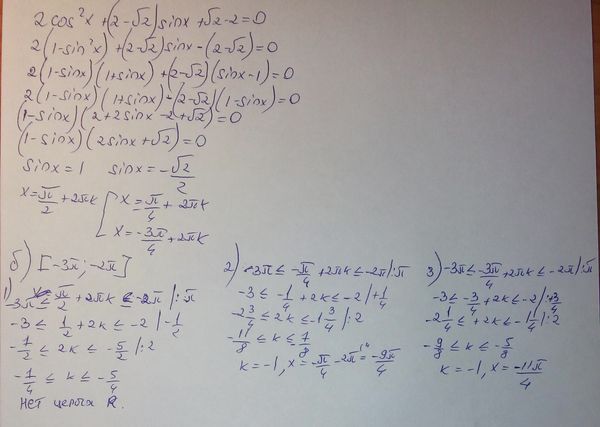 2cos²x+(2-√2)sinx+√2-2=0
2(1-sin²x)+(2-√2)sinx-(2-√2)=0
2(1-sinx)(1+sinx)+(2-√2)(sinx-1)=0
2(1-sinx)(1+sinx)-(2-√2)(1-sinx)=0
(1-sinx)(2+2sinx-2+√2)=0
(1-sinx)(2sinx+√2)=0
sinx=1 sinx=-√2/2
x=π/2+2πk [x=π/4+2πk
x=-3π/4+2πk
б) [-3π; -2π]
1) -3π≤π/2+2πk≤-2π|:π
-3≤1/2+2k≤-2|-1/2
-7/2≤2k≤-5/2|:2
-7/4≤k≤-5/4
Нет целых k.
2) -3π≤-π/4+2πk≤-2π|:π
-3≤-1/4+2k≤-2|+1/4
-2 3/4≤2k≤-1 3/4|:2
-11/8≤k≤7/8
k=-1, x=-π/4-2π=-9π/4
3) -3π≤-3π/4+2πk≤-2π|:π
-3≤-3/4+2k≤-2|+3/4
-2 1/4≤+2k≤-1 1/4|:2
-9/8≤k≤-5/8
k=-1, x=-11π/4